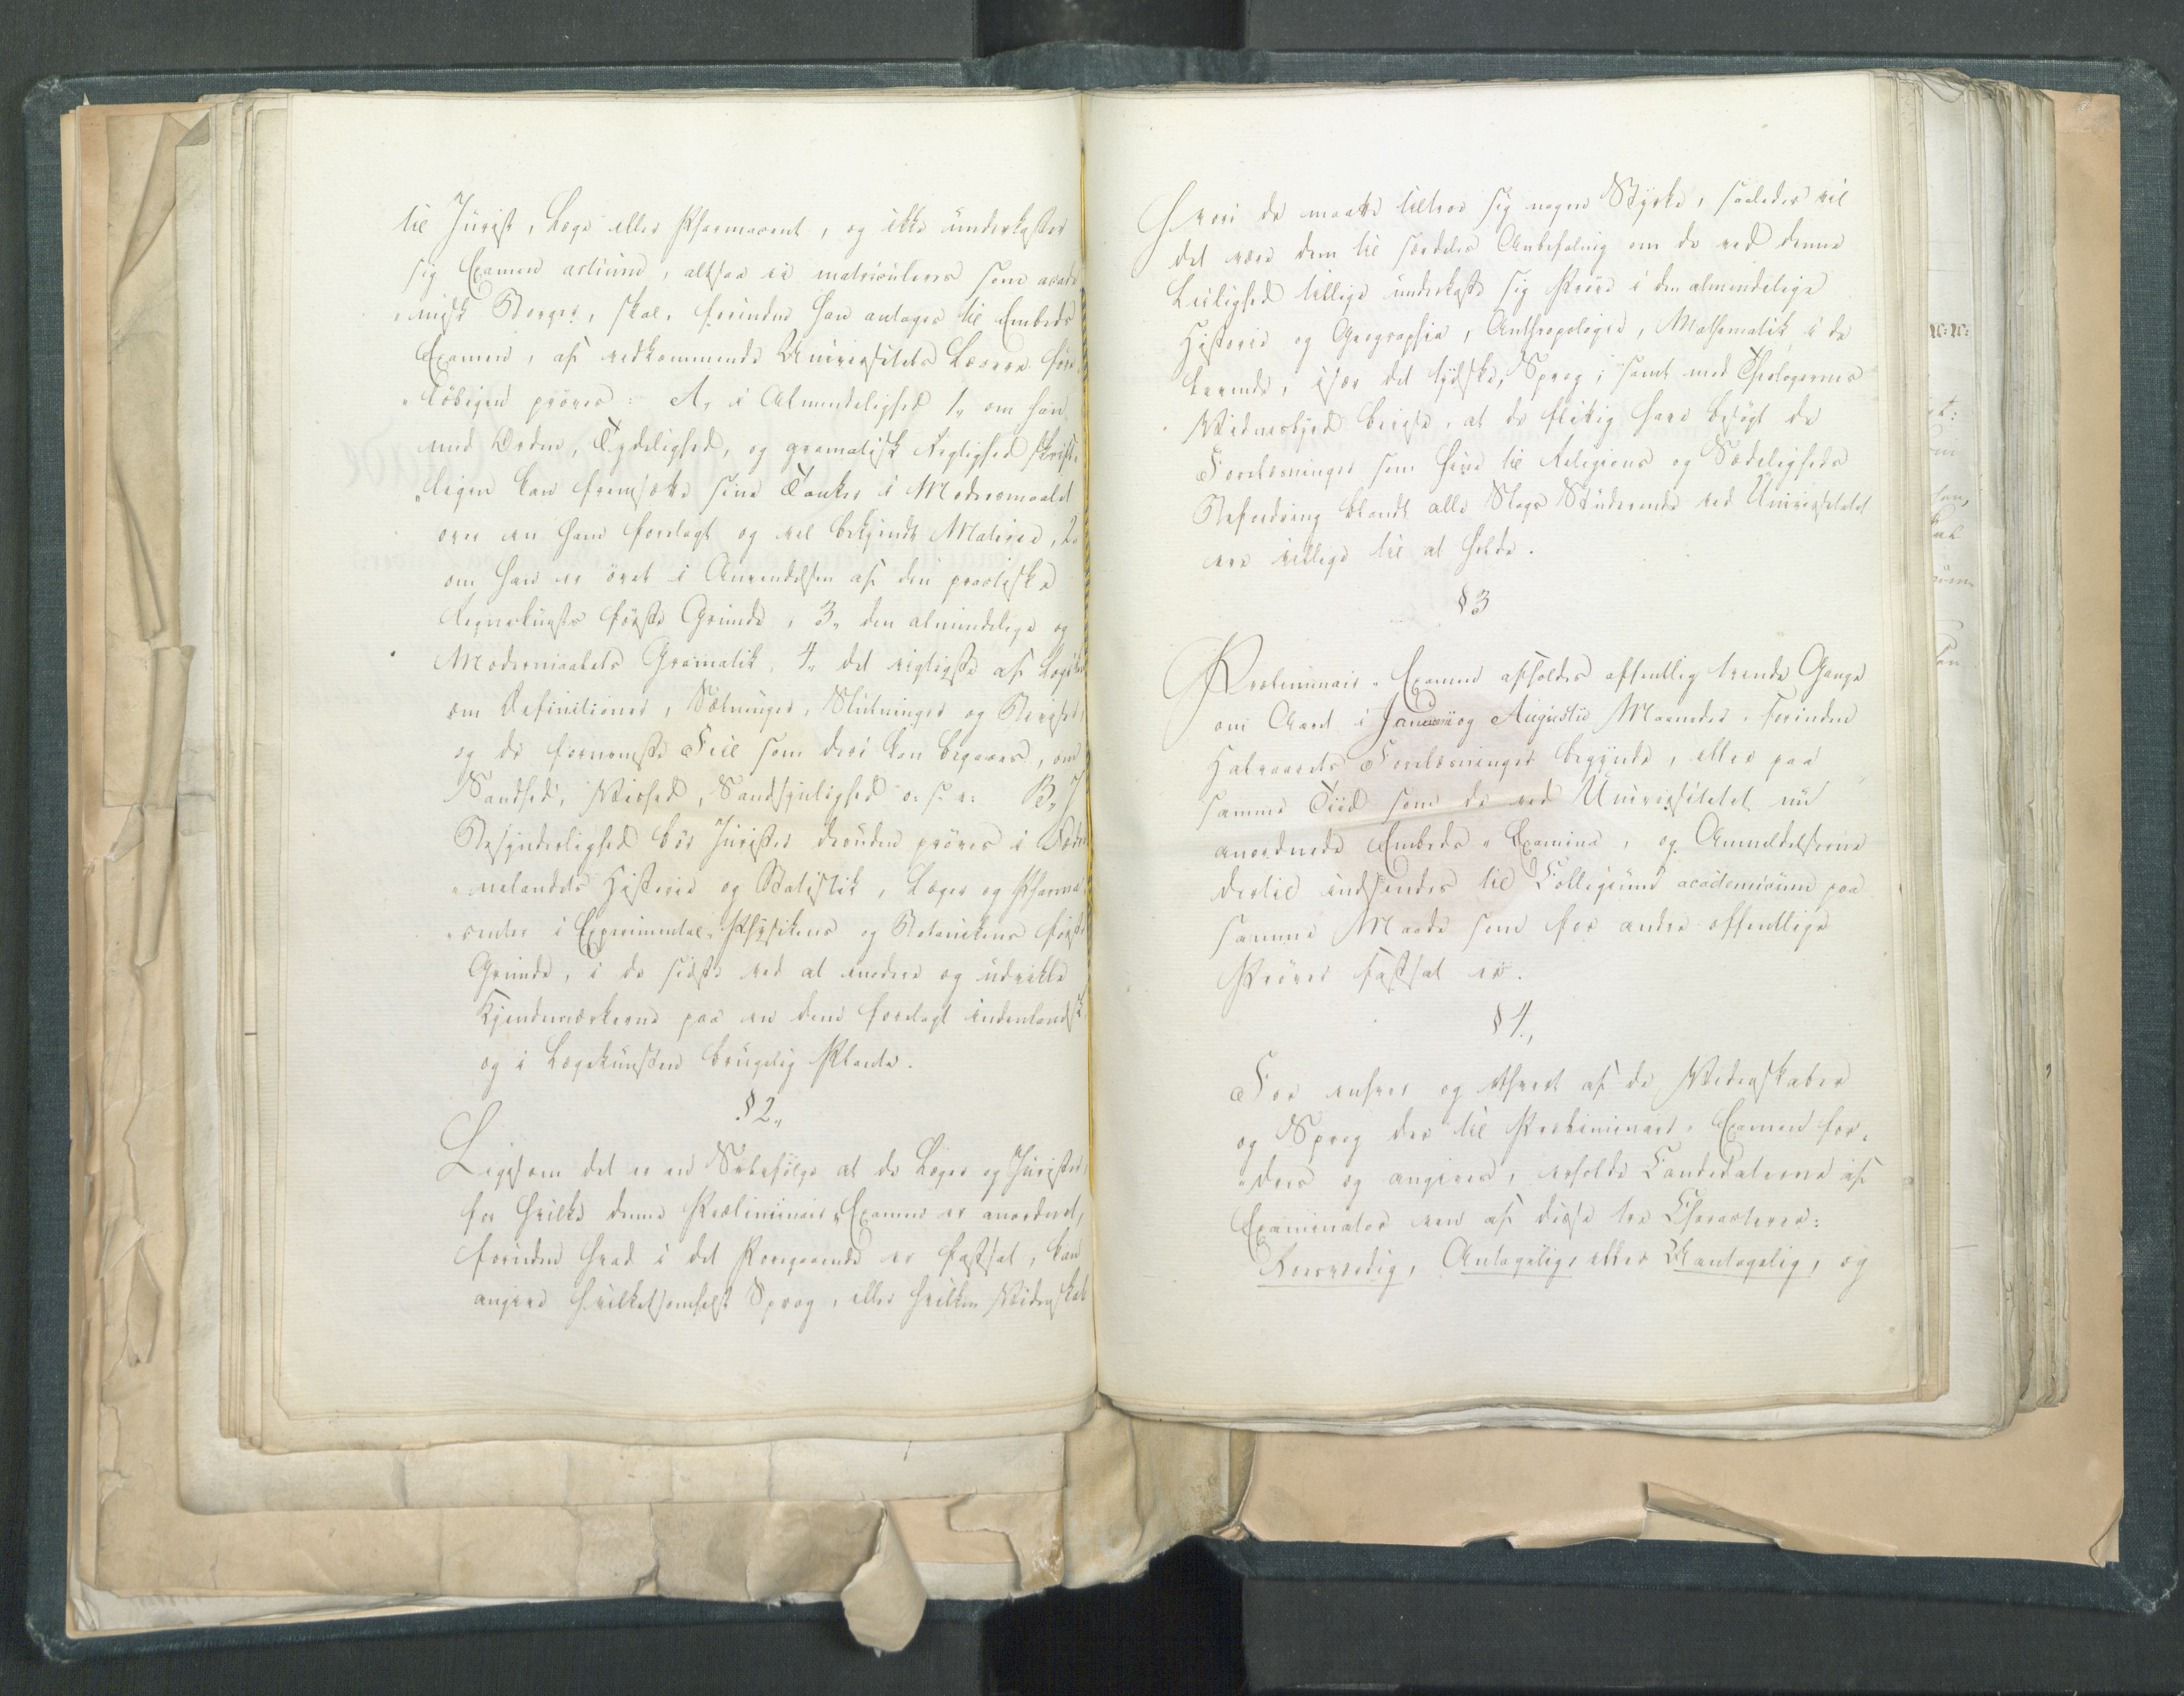 til Jurist, Læge eller Pharmaceut, og ikke underkaster
sig Examen artium, altsaa ei matriculeres som acade
„misk Borger, skal, forinden han antages til Embeds
Examen, af vedkommende Universitets Lærere fore„
„löbigen pröves: A, i Almindelighed 1„ om han
med Orden, Tydelighed, og gramatisk Rigtighed skrift„
„ligen kan fremsætte sine Tanker i Modersmaalet
over en ham forelagt og vel bekjendt Materie, 2„
om han er övet i Anvendelsen af den practiske
Regnekunsts förste Grunde, 3„ den almindelige og
Modersmaalets Gramatik, 4„ det vigtigste af Logiken
om Definitioner, Sætninger, Slutninger og Beviser,
og de fornemste Feil som deri kan begaaes, om
Sandhed, Vished, Sandsynlighed o: s: v: B„ I
Besynderlighed bör Jurister desuden pröves i Fædre
„nelandets Historie og Statistik, Læger og Pharma
„ceuter i Experimental-Physikens og Botanikens förste
Grunde, i de sidste ved at anföre og udvikle
Kjendemærkerne paa en dem forelagt indenlandsk
og i Lægekunsten brugelig Plante.
§ 2„
Ligesom det er en Selvfölge at de Læger og Jurister,
for hvilke denne Præliminair„Examen er anordnet,
foruden hvad i det Foregaaende er fastsat, kan
angive hvilketsomhelst Sprog, eller hvilken Videnskab
hvori de maatte tiltroe sig nogen Styrke, saaledes vil
det være dem til særdeles Anbefaling om de ved denne
Leilighed tillige underkaste sig Pröve i den almindelige
Historie og Geographie, Anthropologie, Mathematik, i de
levende, især det tydske, Sprog; samt med Theologernes
Vidnesbyrd bevise, at de flittig have besögt de
Forelæsninger som disse til Religions og Sædeligheds
Befordring blandt alle Slags Studerende ved Universitetet
ere villige til at holde.
§ 3
Præliminair„Examen afholdes offentlig tvende Gange
om Aaret i Januarii og Augustii Maaneder, forinden
Halvaarets Forelæsninger begynde, eller paa
samme Tiid som de ved Universitetet nu
anordnede Embeds„Examina, og Anmeldelserne
dertil indsendes til Collegium academicum paa
samme Maade som for andre offentlige
Pröver fastsat er.
§ 4.,
For enhver og ethvert af de Videnskaber
og Sprog der til Præliminair„Examen for„
„dres og angives, erholde Candidaterne af
Examinator een af disse tre Characterer:
Roesværdig, Antagelig, eller Uantagelig, og